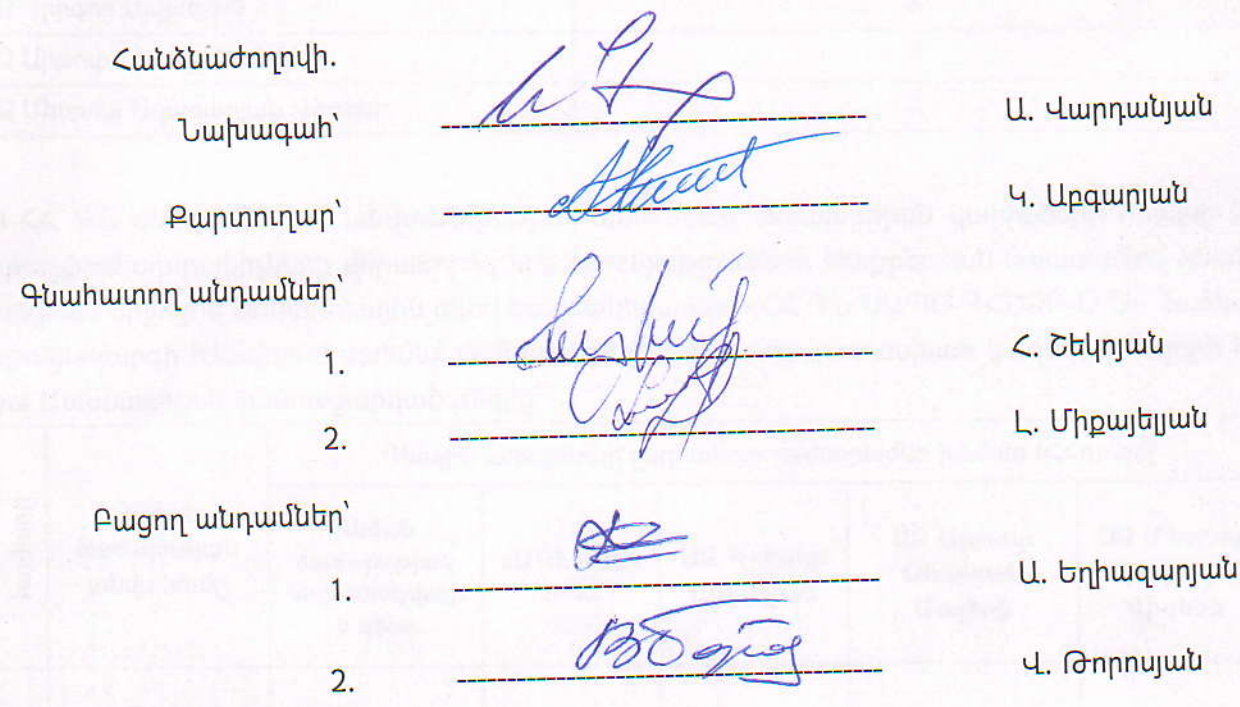 Հանձնաժողովի.
Նախագահ՝ Ա. Վարդանյան
Քարտուղար՝ Կ. Աբգարյան
Գնահատող անդամներ՝
1. Հ. Շեկոյան
2. Լ. Միքայելյան
Բացող անդամներ՝
1. Ա. Եղիազարյան
2. Վ. Թորոսյան